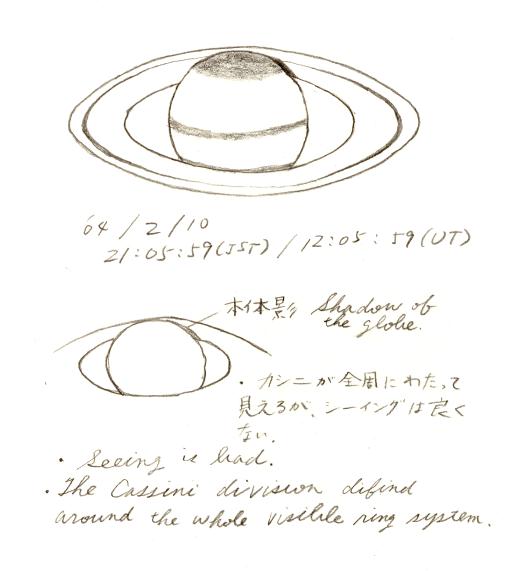 '04 / 2 / 10
21:05:59(JST) / 12:05:59(UT)
本体影 Shadow of
the globe.
・カシニが全周にわたって
見えるが、シーイングは良く
ない.
・Seeing is bad.
・The Cassini division difind
around the whole visible ring system.